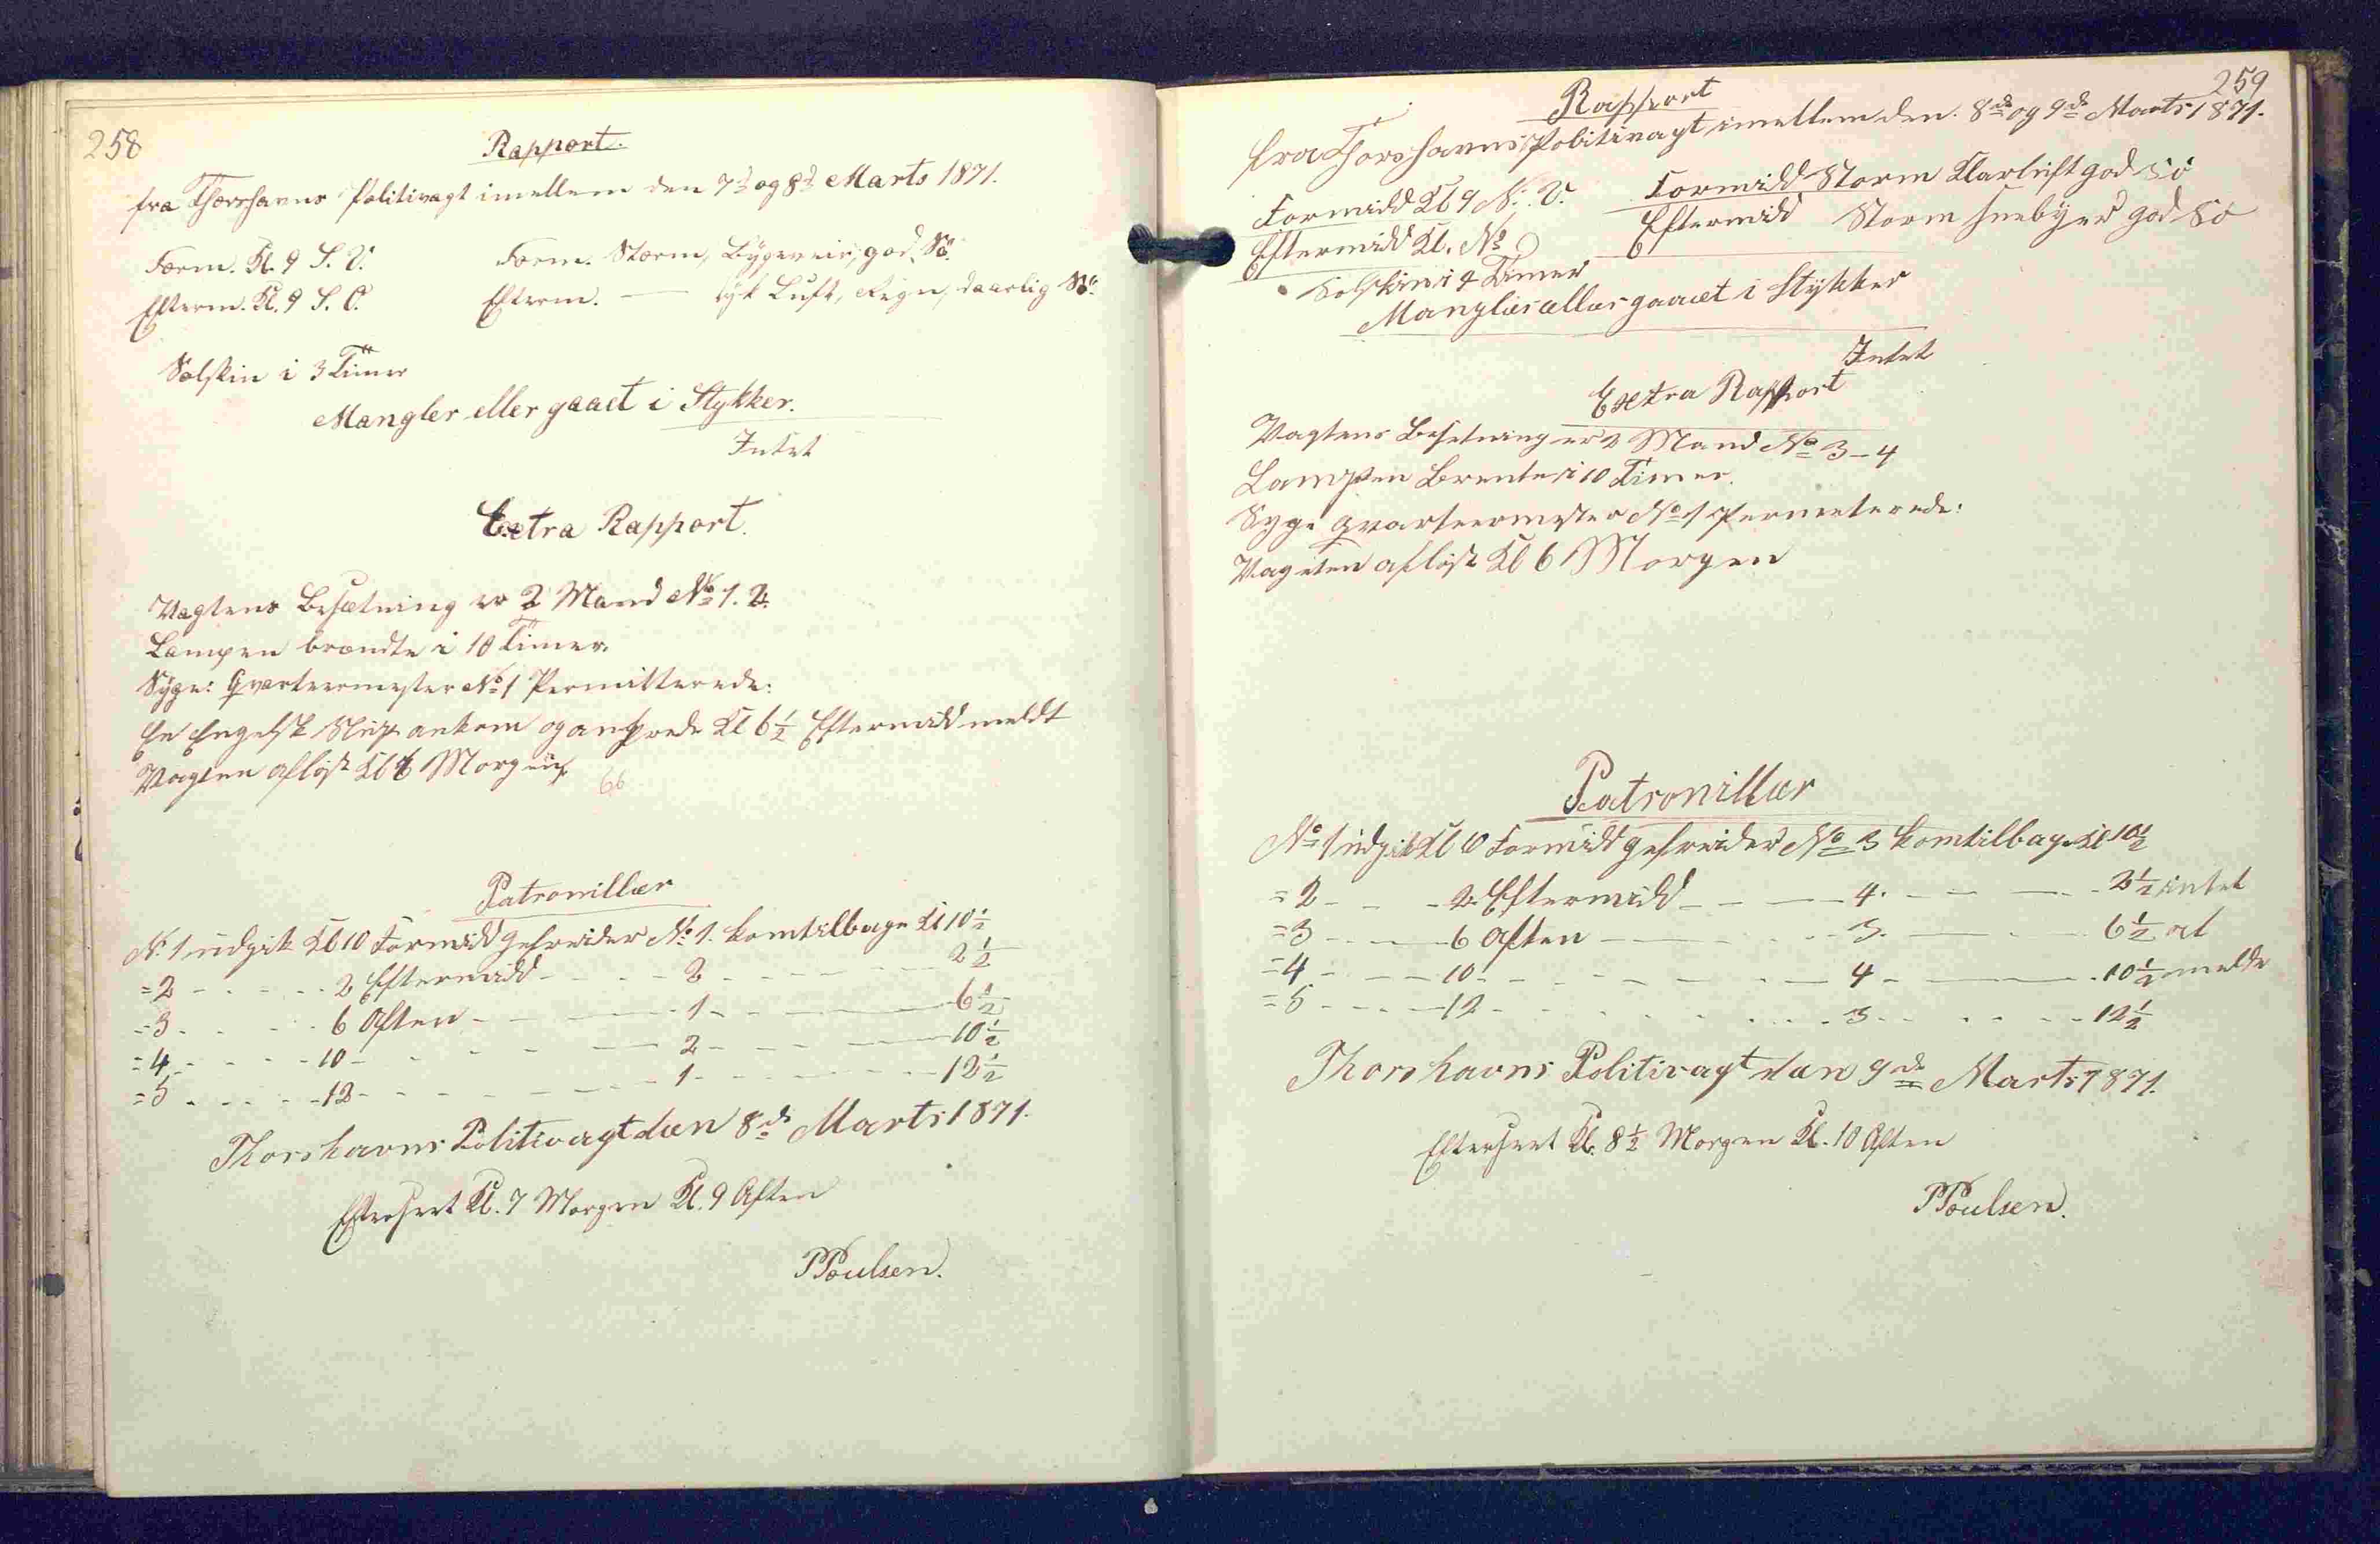 258
Rapport.
fra Thorshavns Politivagt imellem den 7de og 8de Marts 1871.
Form. Kl. 9 S. V. Form. Storm, Bygeveir, god Sö.
Efterm. Kl. 9 S. O. Efterm. — tyk Luft, Regn, daarlig Sö.
Solskin i 3 Timer
Mangler eller gaaet i Stykker.
Intet
Extra Rapport.
Vagtens Besætning er 2 Mand No 1. 2.
Lampen brændte i 10 Timer.
Syge: Qvarteermester No 1 Permitterede:
En Engelsk Slup ankom og Kl 6½ Eftermidd meldt
Vagten aflöst Kl 6 Morgen
66
Patronillær
No 1 udgik Kl 10 Formidd gefreider No 1. kom tilbage Kl 10½
= 2 - - - 2 Eftermidd - - - 2 - - - 2½
= 3 - - - 6 Aften - - - 1 - - - 6½
= 4 - - - 10 - - - 2 - - - 10½
= 5 - - - 12 - - - 1 - - - 12½
Thorshavns Politivagt den 8de Marts 1871.
Efterseet Kl. 7 Morgen Kl. 9 Aften
PPoulsen.
259
Rapport
fra Thorshavns Politivagt imellem den 8de og 9de Marts 1871.
Formidd Kl 9 N. V. Formidd Storm Klarluft god Sö
Eftermidd Kl. No 9 Eftermidd Storm Sneebyer god Sö
Solskin i 4 Timer
Manglær ællær gaaet i Stykker
Intet
Extra Rapport
Vagtens Besetning er 2 Mand No 3-4
Lampen Brente i 10 Timer.
Syge qvarteermester No 1 Permeterede:
Vagten aflöst Kl 6 Morgen
Patronillær
No 1 udgik Kl 10 Formidd gefreider No 3 kom tilbage Kl 10½
= 2 - - - 2 Eftermidd - - - 4. - - - 2½ intet
= 3 - - - 6 Aften - - - 3. - - - 6½ at
= 4 - - - 10 - - - 4 - - - 10½ melde
= 5 - - - 12 - - - 3 - - - 12½
Thorshavns Politivagt dæn 9de Marts 1871.
Efterseet Kl. 8½ Morgen Kl. 10 Aften
PPoulsen.